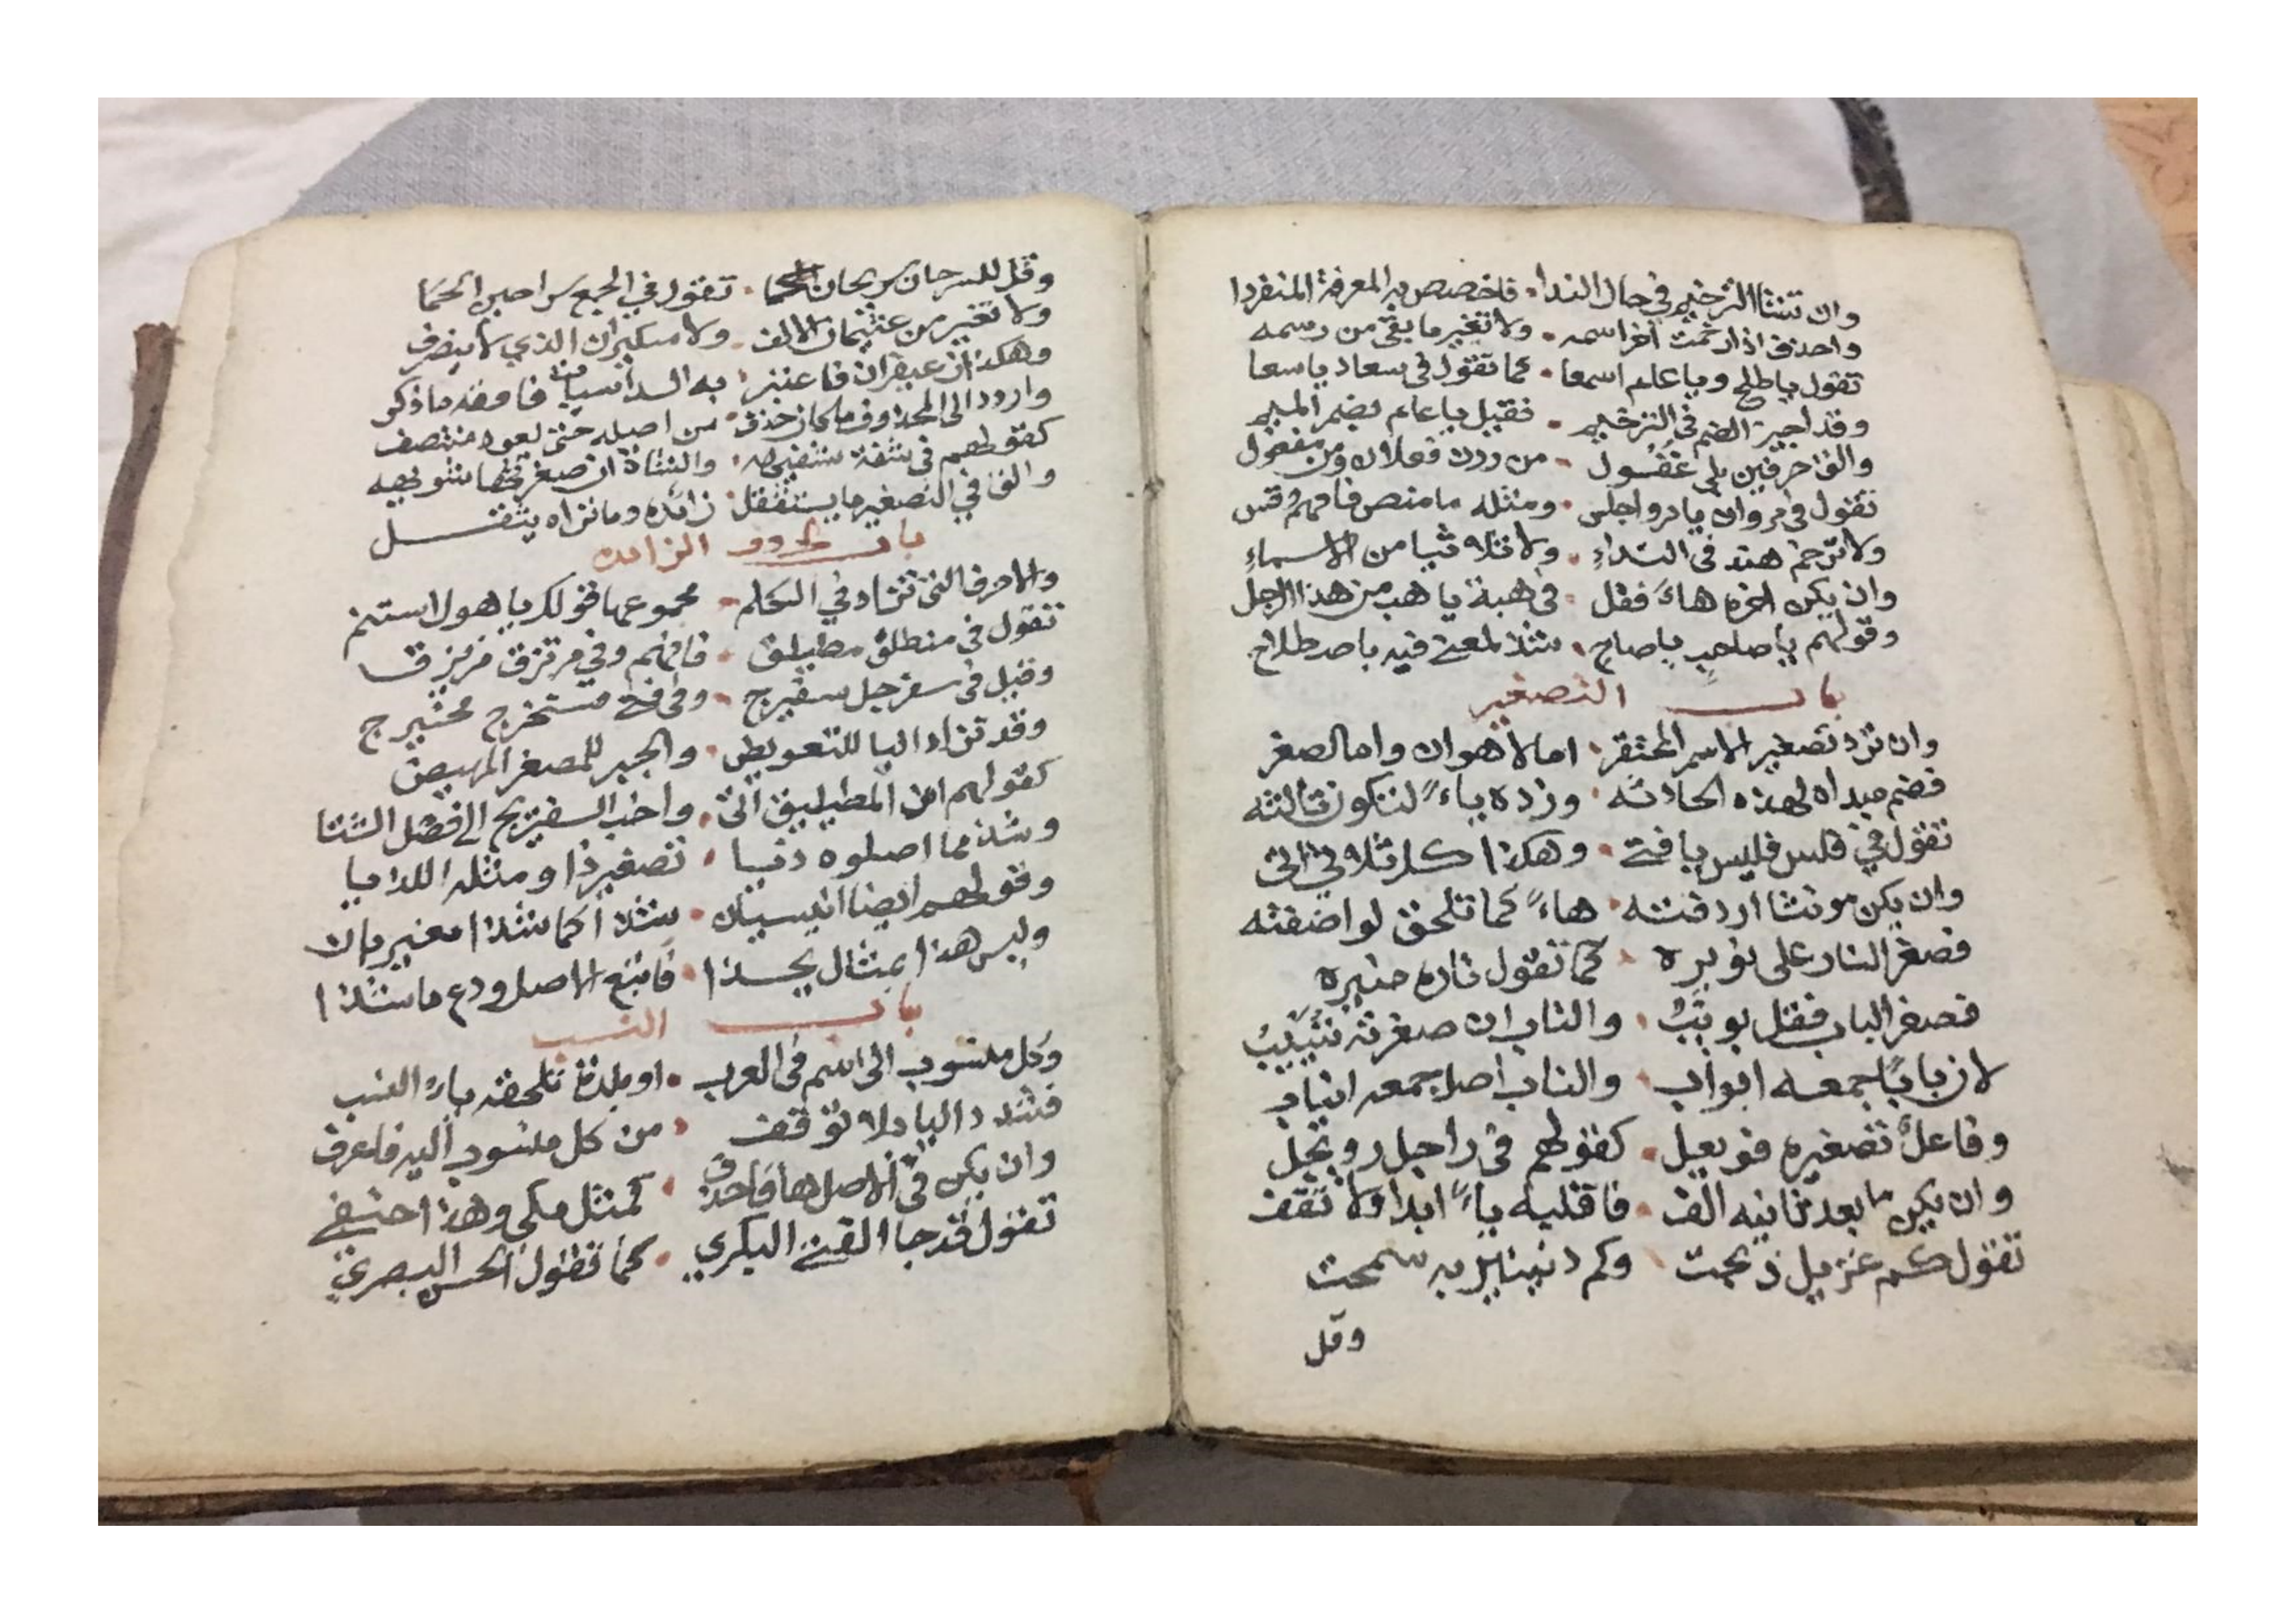 وان تشا الترخيم في حال الندا . فاخصص به المعرفة المنفردا
واحذف اذا رخمت اخر اسمه . ولا تغير ما بقى من رسمه
تقول يا طلح ويا عام اسمعا . كما تقول في سعاد يا سعا
وقد اجيز الضم في الترخيم . فقيل يا عام بضم الميم
والق حرفين بلى غفول . من وزن فعلان ومن مفعول
تقول في مروان يا مرو اجلس . ومثله يا منص فافهم وقس
ولا ترخم هند في النداءِ . ولا ثلاثيا من الاسماءِ
وان يكن اخره هاءً فقل . في هبة يا هب من هذا الرجل
وقولهم يا صاحبٍ يا صاح . شذ لمعنى فيه باصطلاح
باب التصغير
وان ترد تصغير الاسم المحتقر . اما لاهوان واما لصغر
فضم مبداه لهذه الحادثه . وزده ياءً لتكون ثالثه
تقول في فلس فليس يا فتى . وهكذا كل ثلاثي اتى
وان يكن مونثا اردفته . هاءً كما تلحق لو اضفته
فصغر النار على نويره . كما تقول ناره منيره
فصغر الباب فقل بويبُ . والناب ان صغرته نييبُ
لان بابًا جمعه ابواب . والناب اصل جمعه انياب
وفاعلٌ تصغيره فويعل . كقولهم في راجل رويجل
وان يكن ما بعد ثانيه الف . فاقلبه ياءً ابدا ولا تقف
تقول كم غزيل ذبحت . وكم دنينير به سمحت
وقل
وقل للسرحان سريحان كما . تقول في الجمع سراحين الحما
ولا تغير من عثيمان الالف . ولا سكيران الذي لا ينصرف
وهكذا زعيفران فاعتبر . به السداسيات فافقه ما ذكر
واردد الى المحذوف ما كان حذف . من اصله حتى يعود منتصف
كقولهم في شفة شفيهه . والشاة ان صغرتها شويهه
والق في التصغير ما يستثقل . زائده وما تراه يثقل
باب حروف الزائده
والاحرف التي تزاد في الكلم . مجموعها قولك يا هول استنم
تقول في منطلق مطيلق . فافهم وفي مرتزق مريزقا
وقيل في سفرجل سفيرج . وفي فتى مستخرج مخيرج
وقد تزاد اليا للتعويض . والجبر للمصغر المهيض
كقولهم ان المطيليق اتى . واخب السفيريج الى فصل الشتا
وشذ مما اصلوه ذيا . تصغير ذا ومثله اللذيا
وقولهم ايضا انيسيان . شذ كما شذ مغيربان
وليس هذا بمثال يحذا . فاتبع الاصل ودع ما شذا
باب النسب
وكل منسوب الى اسم في العرب . او بلدة تلحقه ياءُ النسب
فشدد اليا بلا توقف . من كل منسوب اليه فاعرف
وان يكن في الاصل ها فاحذف . كمثل مكي وهذا حنفي
تقول قد جا الفتى البكري . كما تقول الحسن البصري